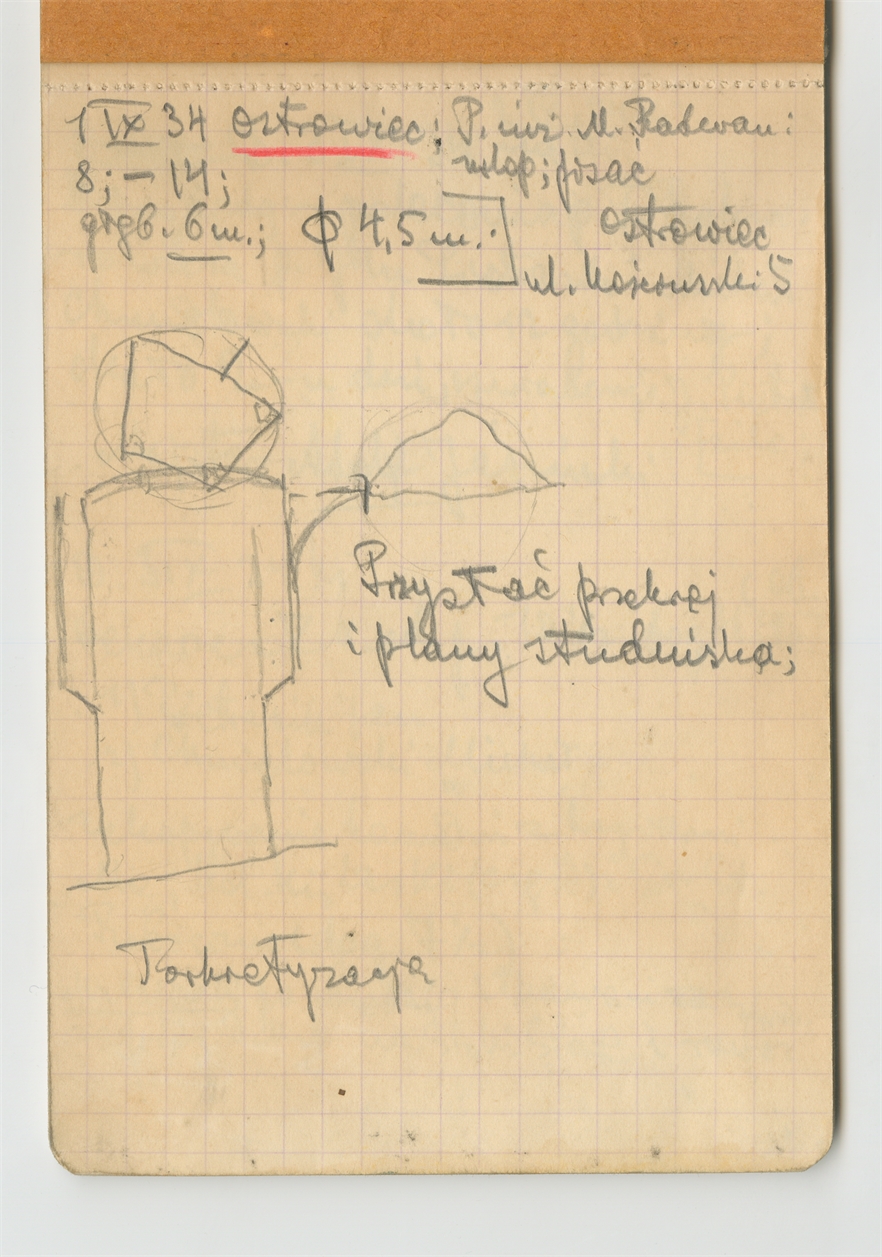 1 IX 34 Ostrowiec; P. inż. M. Radwan:
8; – 14; pisać
6 m.; ϕ 4,5 m.: Ostrowiec
ul. 5
Przysłać przekrój
i plany studniska;
Torkretyzacja